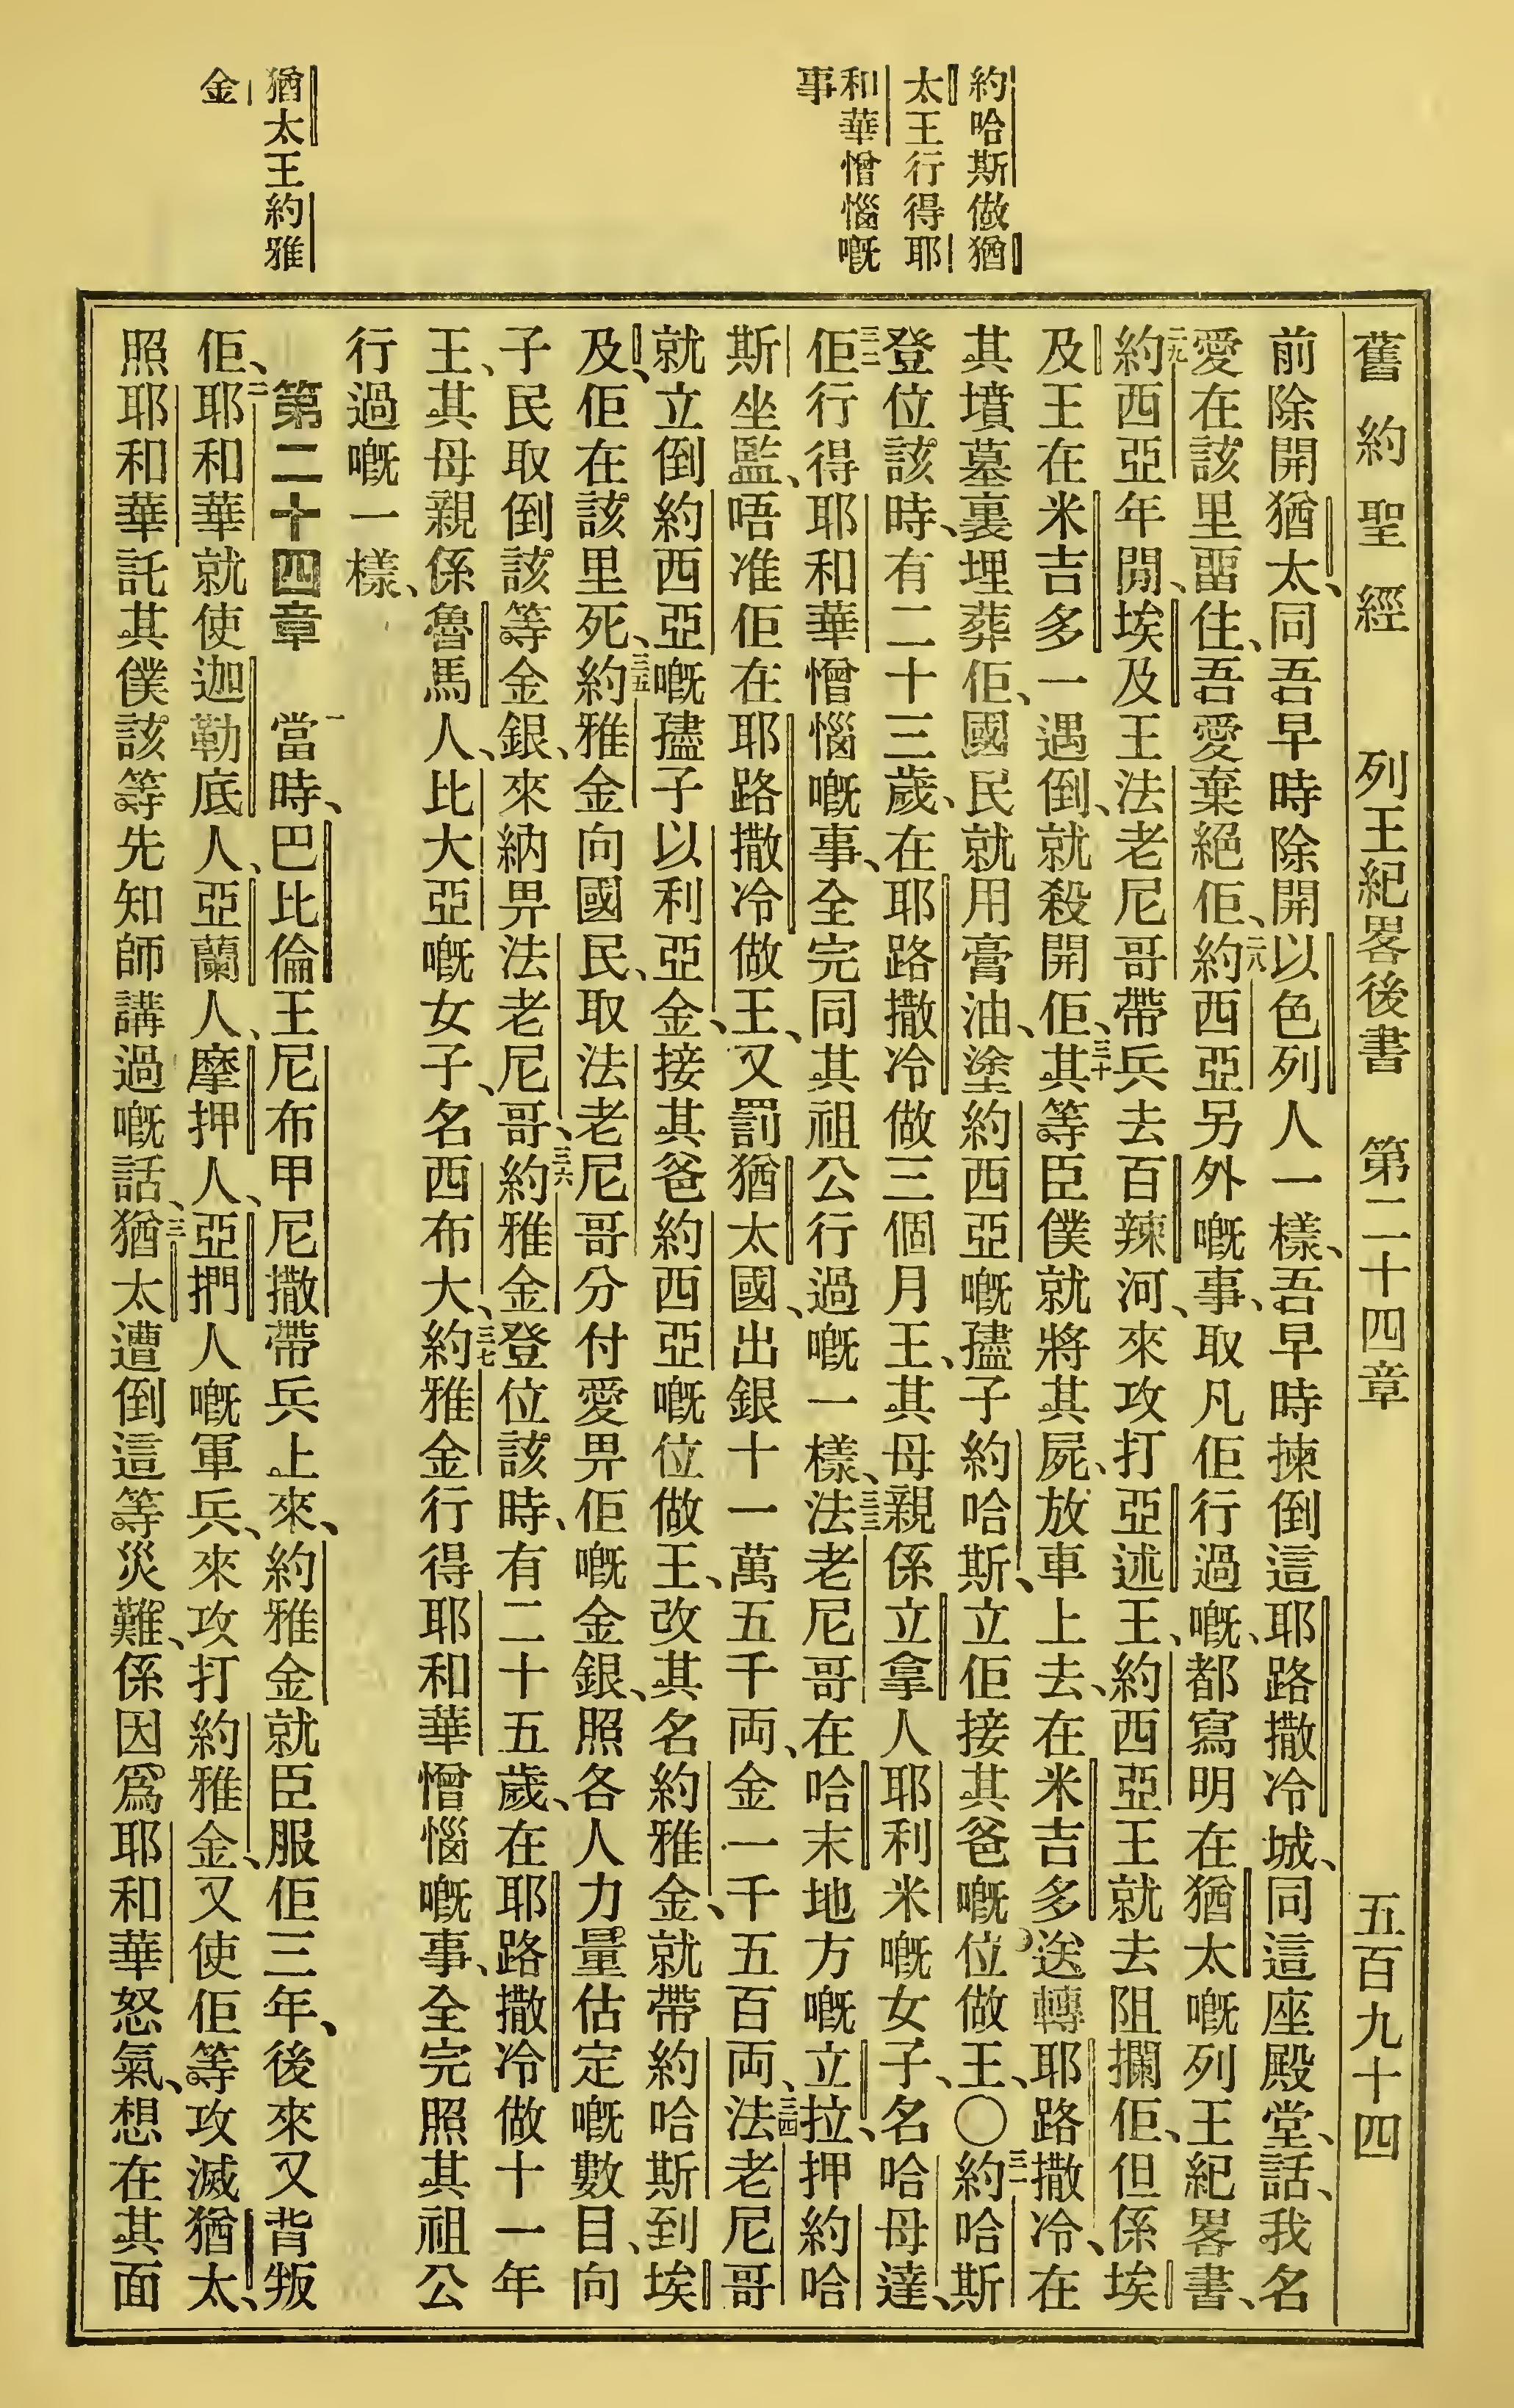 約哈斯做猶
太王行得耶
和華憎惱嘅
事
猶太王約雅
金
舊約聖經 列王紀畧後書 第二十四章 五百九十四
前除開猶太、同吾早時除開以色列人一樣、吾早時揀倒這耶路撒冷城、同這座殿堂、話、我名
愛在該里畱住、吾愛棄絕佢、二八約西亞另外嘅事、取凡佢行過嘅、都寫明在猶太嘅列王紀畧書、
二九約西亞年間、埃及王法老尼哥帶兵去百辣河、來攻打亞述王、約西亞王就去阻攔佢、但係埃
及王在米吉多一遇倒、就殺開佢、三十其等臣僕就將其屍、放車上去、在米吉多送轉耶路撒冷、在
其墳墓裏埋葬佢、國民就用膏油、塗約西亞嘅孻子約哈斯、立佢接其爸嘅位做王、〇三一約哈斯
登位該時、有二十三歲、在耶路撒冷做三個月王、其母親係立拿人耶利米嘅女子、名哈母達、
三二佢行得耶和華憎惱嘅事、全完同其祖公行過嘅一樣、三三法老尼哥在哈末地方嘅立拉、押約哈
斯坐監、唔准佢在耶路撒冷做王、又罰猶太國、出銀十一萬五千両、金一千五百両、三四法老尼哥
就立倒約西亞嘅孻子以利亞金、接其爸約西亞嘅位做王、改其名約雅金、就帶約哈斯到埃
及、佢在該里死、三五約雅金向國民、取法老尼哥分付愛畀佢嘅金銀、照各人力量估定嘅數目、向
子民取倒該等金銀、來納畀法老尼哥、三六約雅金登位該時、有二十五歲、在耶路撒冷做十一年
王、其母親係魯馬人、比大亞嘅女子、名西布大、三七約雅金行得耶和華憎惱嘅事、全完照其祖公
行過嘅一樣、
第二十四章 一當時、巴比倫王尼布甲尼撒帶兵上來、約雅金就臣服佢三年、後來又背叛
佢、二耶和華就使迦勒底人、亞蘭人、摩押人、亞捫人嘅軍兵、來攻打約雅金、又使佢等攻滅猶太、
照耶和華託其僕該等先知師講過嘅話、三猶太遭倒這等災難、係因爲耶和華怒氣、想在其面